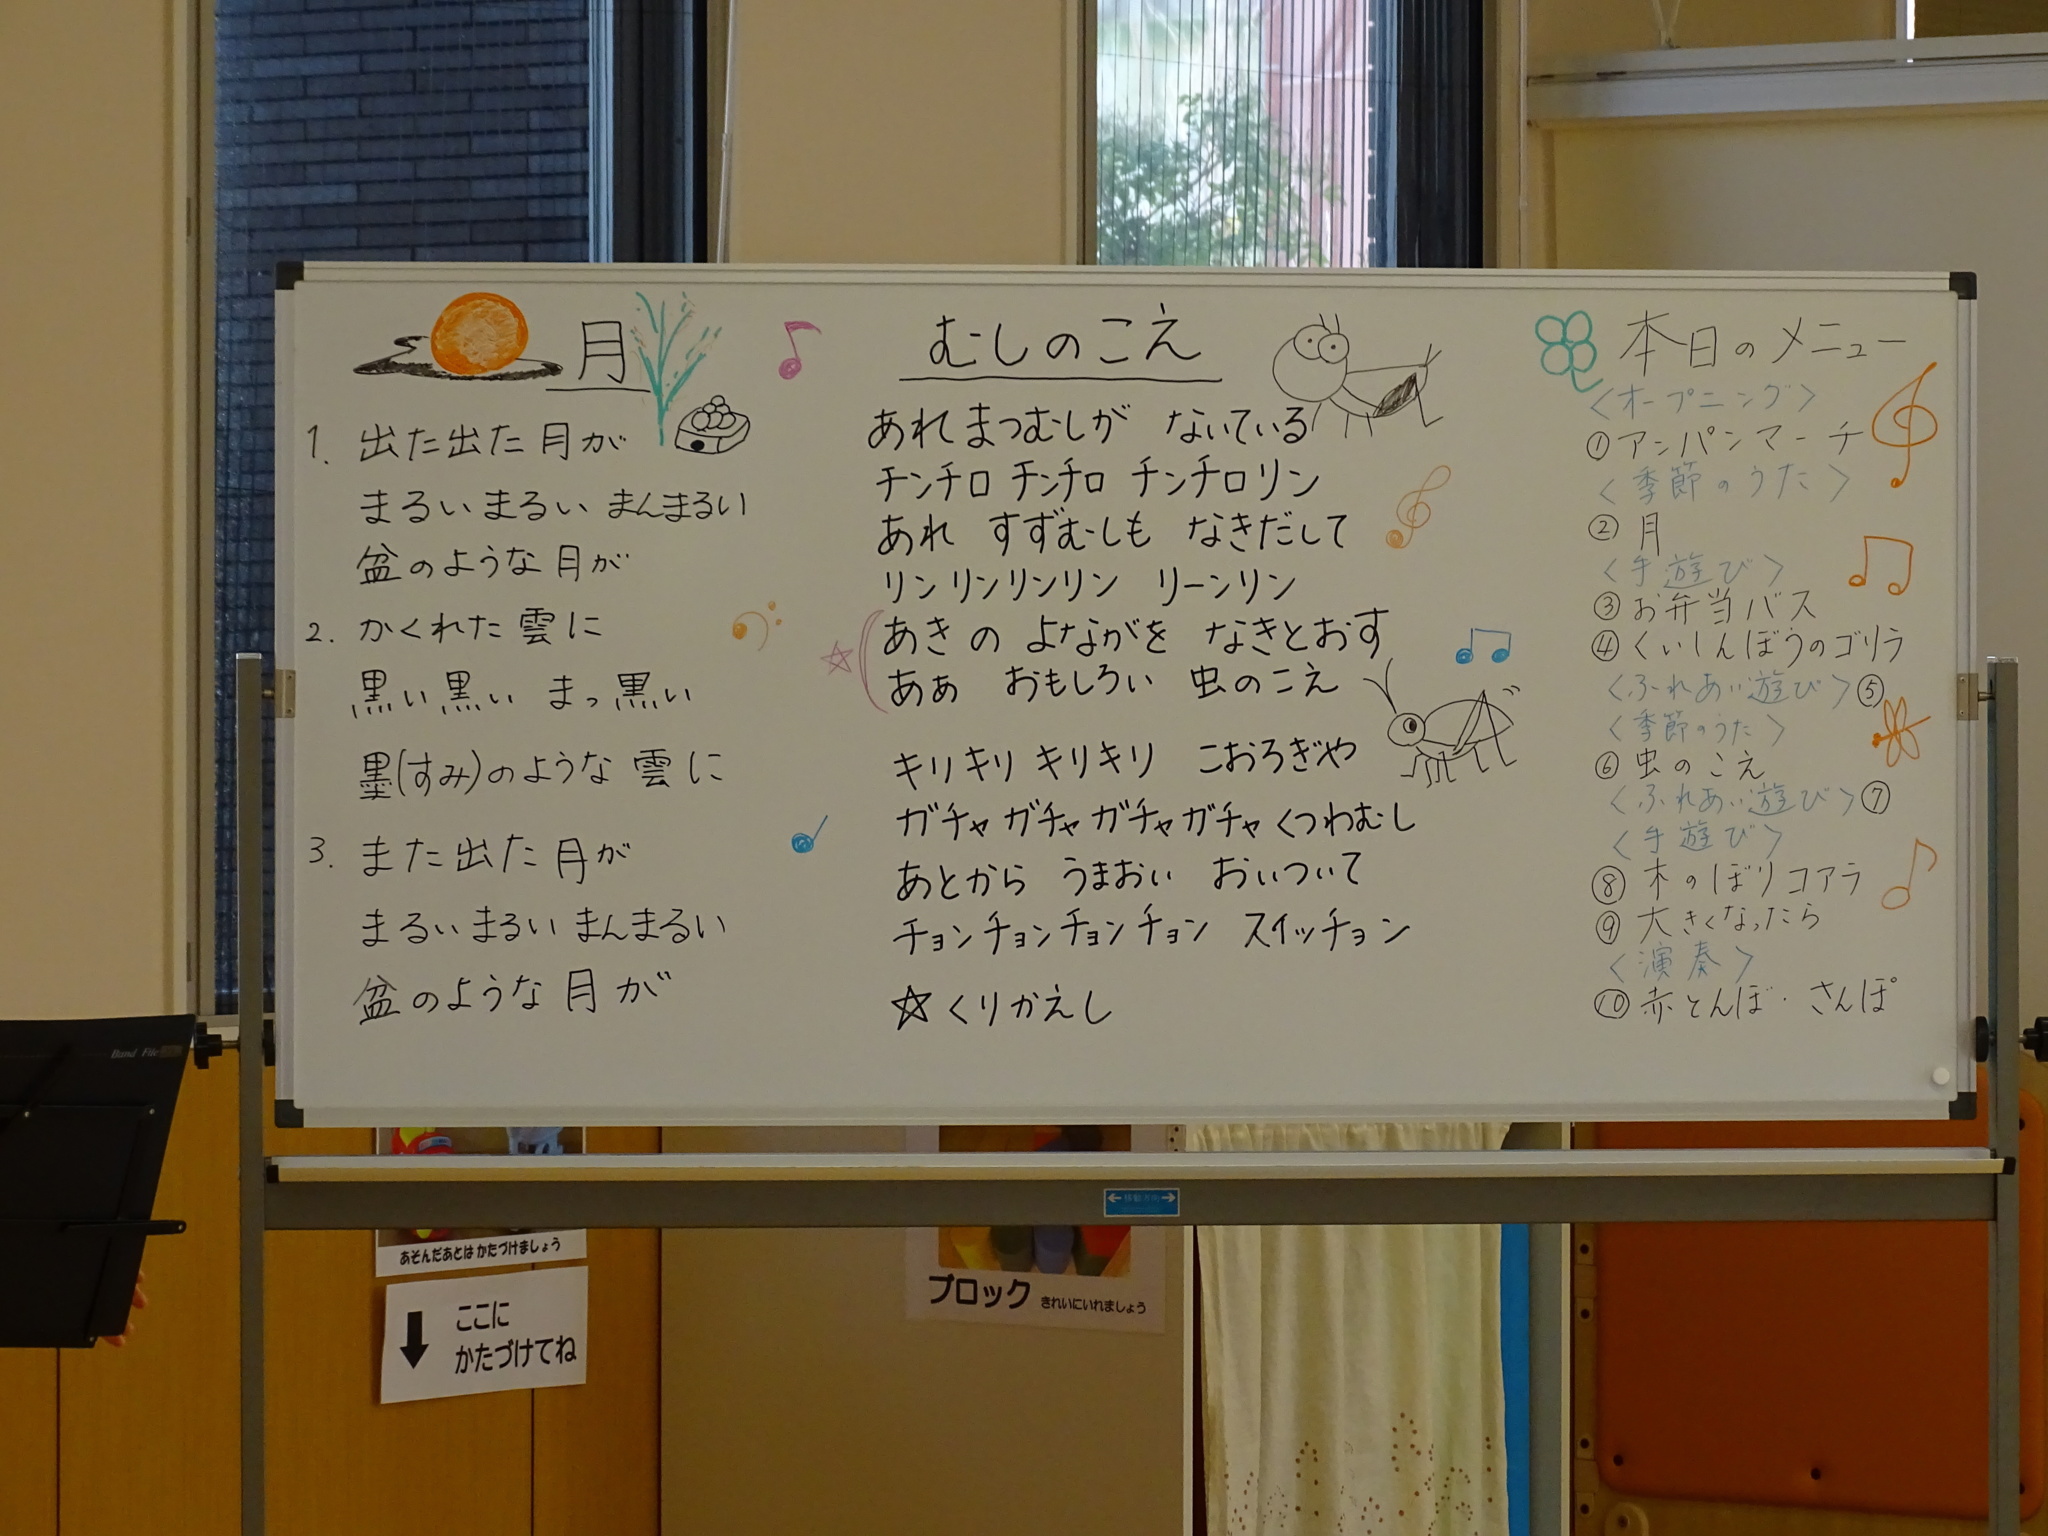 月
1. 出た出た月が
まるい まるい まんまるい
盆のような月が
2. かくれた雲に
黒い黒い まっ黒い
墨(すみ)のような雲に
3. また出た月が
まるい まるい まんまるい
盆のような月が
むしのこえ
あれ まつむしが ないている
チンチロ チンチロ チンチロリン
あれ すずむしも なきだして
リンリンリンリン リーンリン
☆(あきの よながを なきとおす
あぁ おもしろい 虫のこえ
キリキリ キリキリ こおろぎや
ガチャガチャガチャガチャ くつわむし
あとから うまおい おいついて
チョンチョンチョンチョン スイッチョン
☆くりかえし
本日のメニュー
<オープニング>
①アンパンマーチ
<季節のうた>
②月
<手遊び>
③お弁当バス
④くいしんぼうのゴリラ
<ふれあい遊び>⑤
<季節のうた>
⑥虫のこえ
<ふれあい遊び>⑦
<手遊び>
⑧木のぼりコアラ
⑨大きくなったら
<演奏>
⑩赤とんぼ・さんぽ
Band File
あそんだあとは かたづけましょう
ここに
かたづけてね
ブロック きれいにいれましょう